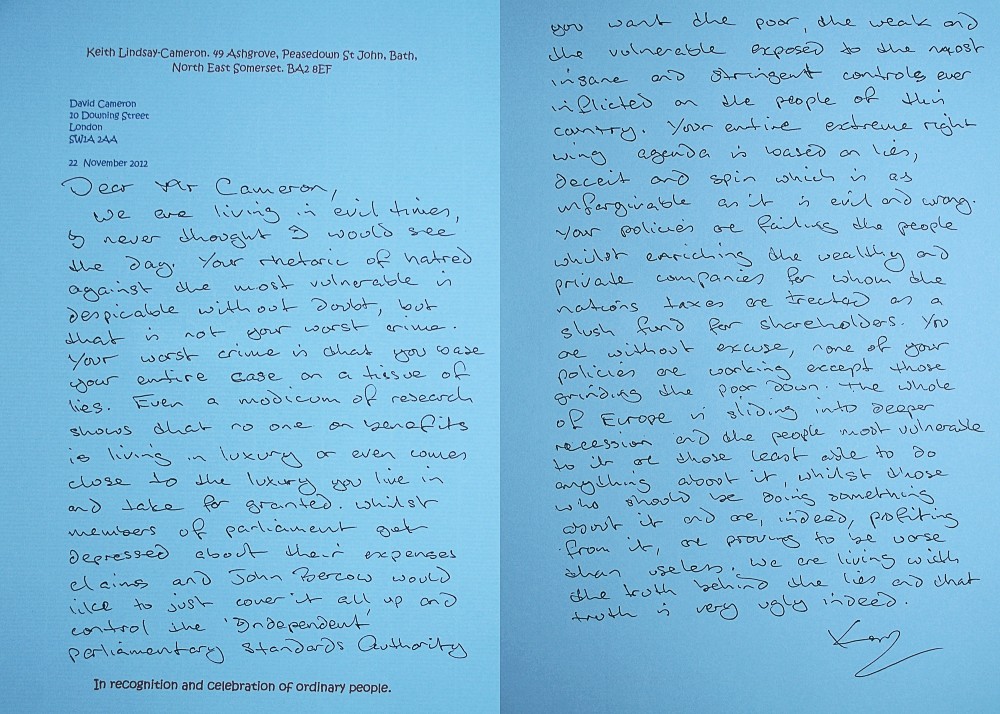 Keith Lindsay-Cameron. 49 Ashgrove, Peasedown St John, Bath,
North East Somerset. BA2 8EF
David Cameron
10 Downing Street
London
SW1A 2AA
22 November 2012
Dear Mr Cameron,
We are living in evil times,
I never thought I would see
the day. Your rhetoric of hatred
against the most vulnerable is
despicable without doubt, but
that is not your worst crime.
Your worst crime is that you base
your entire case on a tissue of
lies. Even a modicum of research
shows that no one on benefits
is living in luxury or even comes
close to the luxury you live in
and take for granted. Whilst
members of parliament get
depressed about their expenses
claims and John Bercow would
like to just cover it all up and
control the 'Independent'
parliamentary Standards Authority
In recognition and celebration of ordinary people.
you want the poor, the weak and
the vulnerable exposed to the most
insane and stringent controls ever
inflicted on the people of this
country. Your entire extreme right
wing agenda is based on lies,
deceit and spin which is as
unforgivable as it is evil and wrong.
Your policies are failing the people
whilst enriching the wealthy and
private companies for whom the
nations taxes are treated as a
slush fund for shareholders. You
are without excuse, none of your
policies are working except those
grinding the poor down. The whole
of Europe is sliding into deeper
recession and the people most vulnerable
to it are those least able to do
anything about it, whilst those
who should be doing something
about it and are, indeed, profiting
from it, are proving to be worse
than useless. We are living with
the truth behind the lies and that
truth is very ugly indeed.